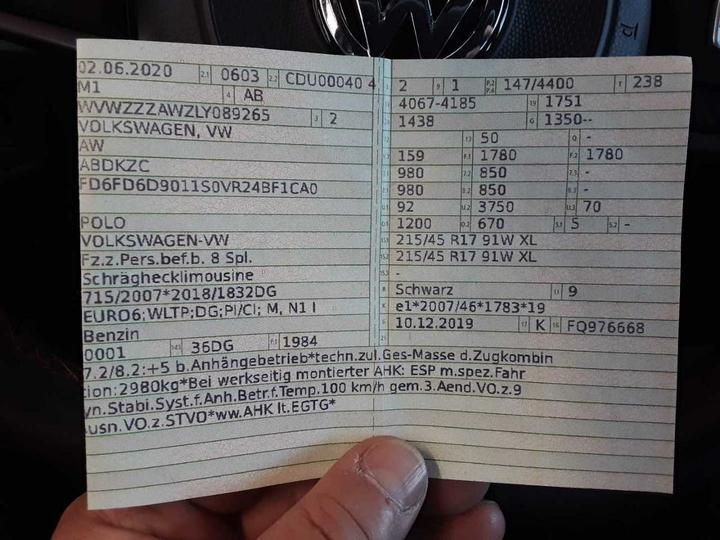 02.06.2020 2.1 0603 2.2 CDU00040 4
M1 4 AB
WVWZZZAWZLY089265 3 2
VOLKSWAGEN, VW
AW
ABDKZC
FD6FD6D9011S0VR24BF1CA0
POLO
VOLKSWAGEN-VW
Fz.z.Pers.bef.b. 8 Spl.
Schräghecklimousine
715/2007*2018/1832DG
EURO6;WLTP;DG;PI/CI; M, N1 I
Benzin
0001 14.1 36DG P.1 1984
2 9 1 P.2 P.4 147/4400 T 238
4067-4185 19 1751
1438 G 1350--
13 50 Q -
159 F.1 1780 F.2 1780
980 7.2 850 7.3 -
980 8.2 850 8.3 -
92 U.2 3750 U.3 70
1200 O.2 670 S.1 5 S.2 -
215/45 R17 91W XL
215/45 R17 91W XL
-
R Schwarz 11 9
K e1*2007/46*1783*19
6 10.12.2019 17 K 16 FQ976668
7.2/8.2:+5 b.Anhängebetrieb*techn.zul.Ges-Masse d.Zugkombin
tion:2980kg*Bei werkseitig montierter AHK: ESP m.spez.Fahr
yn.Stabi.Syst.f.Anh.Betr.f.Temp.100 km/h gem.3.Aend.VO.z.9
Ausn.VO.z.STVO*ww.AHK lt.EGTG*